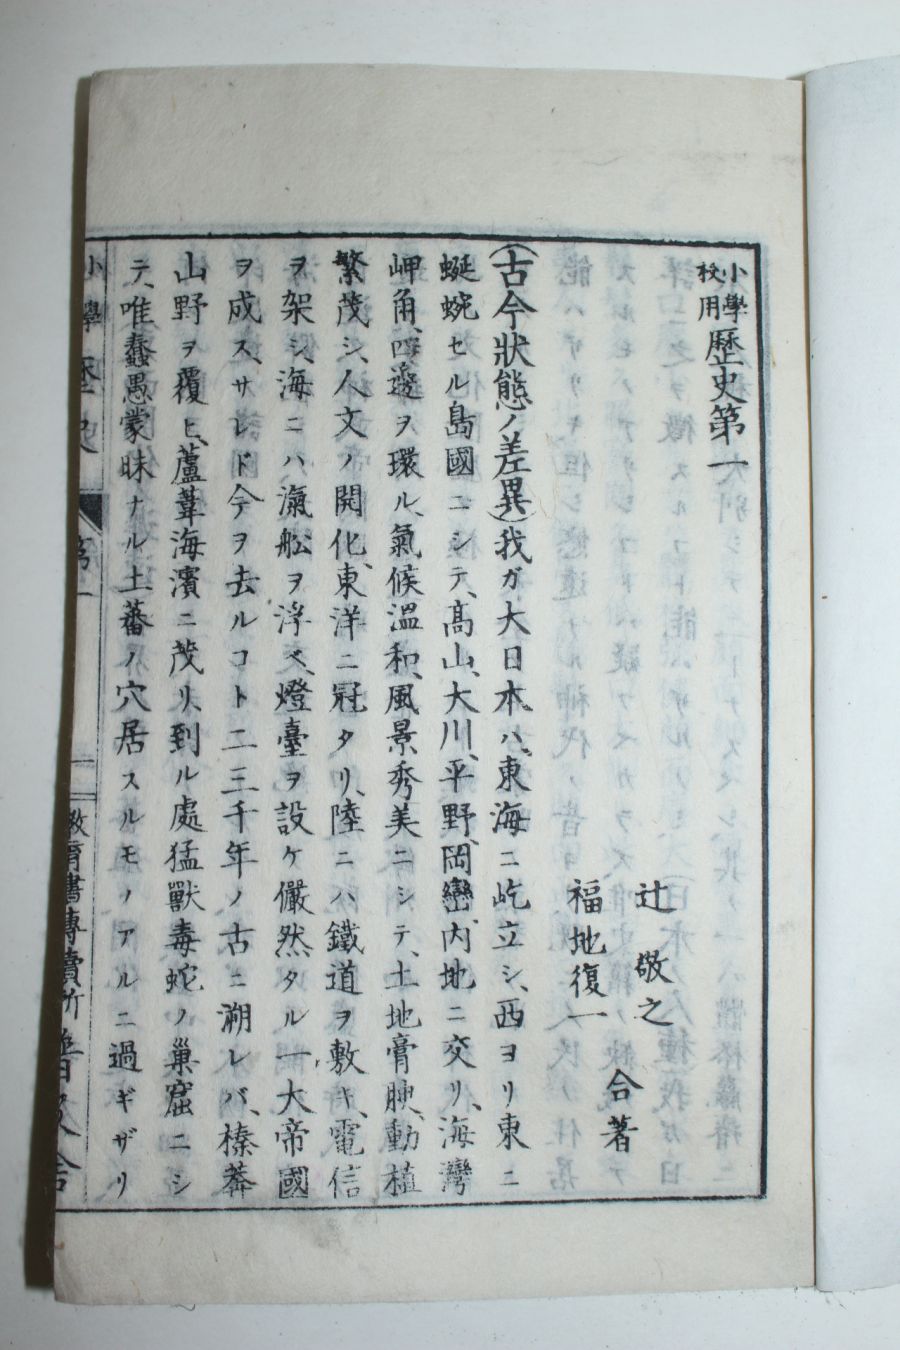 小學校用歷史第一
辻敬之
福地復一
合著
(古今狀態ノ差異)我ガ大日本ハ、東海ニ屹立シ、西ヨリ東ニ
蜒蜿セル島國ニシテ、高山、大川、平野、岡巒、內地ニ交リ、海灣
岬角、四邊ヲ環ル、氣候溫和、風景秀美ニシテ、土地膏腴、動植
繁茂シ、人文ノ開化、東洋ニ冠タリ、陸ニハ鐵道ヲ敷キ、電信
ヲ架シ、海ニハ滊舩ヲ浮ベ、燈臺ヲ設ケ儼然タル一大帝國
ヲ成ス、サレド今ヲ去ルコト二三千年ノ古ニ溯レバ、榛莽
山野ヲ覆ヒ、蘆葦海濱ニ茂リ、到ル處猛獸毒蛇ノ巢窟ニシ
テ、唯蠢愚蒙昧ナル土蕃ノ穴居スルモノアルニ過ギザリ
小學歷史
第一
一
教育書專賣所